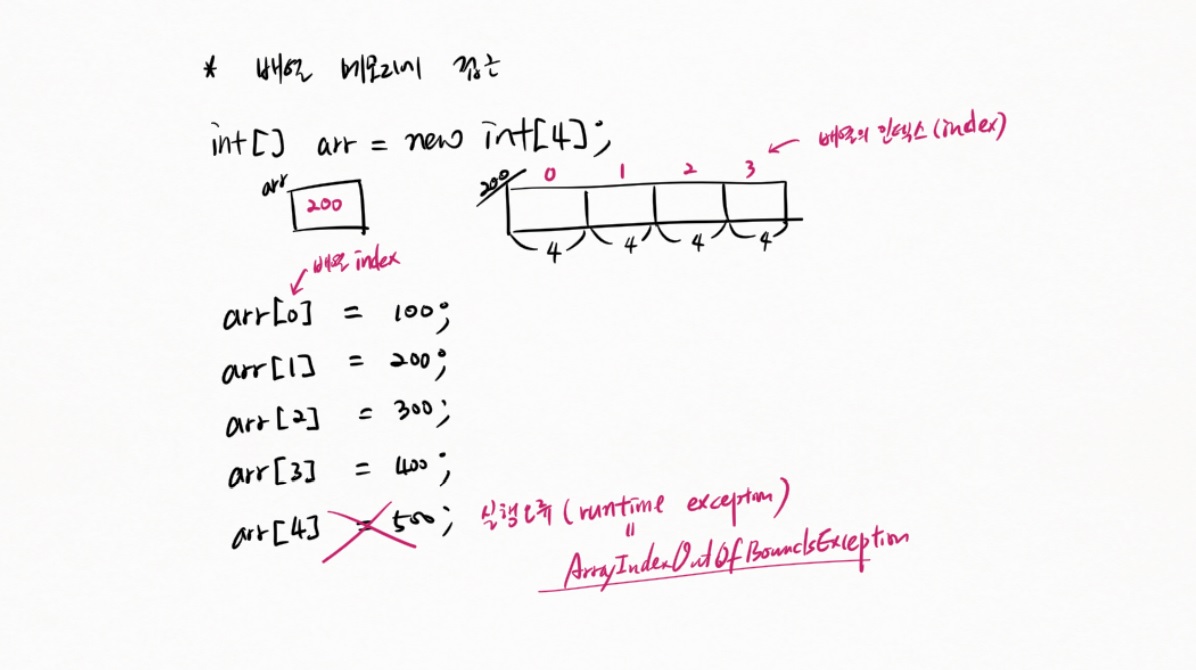 * 배열 메모리에 접근
int[] arr = new int[4];
배열의 인덱스(index)
arr
200
200
0 1 2 3
4 4 4 4
배열 index
arr[0] = 100;
arr[1] = 200;
arr[2] = 300;
arr[3] = 400;
arr[4] = 500; 실행오류 (runtime exception)
=
ArrayIndexOutOfBoundsException